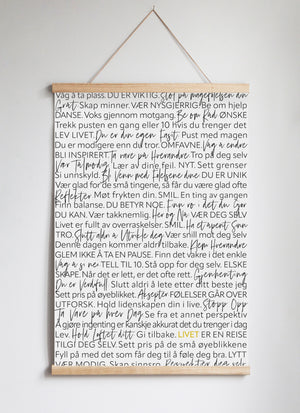 Våg å ta plass. DU ER VIKTIG. Stol på magefølelsen din
Gråt. Skap minner. VÆR NYSGJERRIG. Be om hjelp
DANSE. Voks gjennom motgang. Be om Råd ØNSKE
Trekk pusten en gang eller 10 hvis du trenger det
LEV LIVET. Du er din egen Fasit. Pust med magen
Du er modigere enn du tror. OMFAVNE. Våg å endre
BLI INSPIRERT. Ta vare på Hverandre Tro på deg selv
Vær Tålmodig. Lær av dine feil. NYT. Sett grenser
Si unnskyld. Bli Venn med Følelsene dine DU ER
UNIK. Vær glad for de små tingene, så får du være glad ofte
Reflekter. Møt frykten din. SMIL. En ting av gangen
Finn balanse. DU BETYR NOE. Finn ro i det du Gjør
DU KAN. Vær takknemlig. Her og Nå VÆR DEG SELV
Livet er fullt av overraskelser. SMIL. Ha et åpent Sinn
TRO. Slutt aldri å Utvikle deg. Vær snill mot deg selv
Denne dagen kommer aldri tilbake. Klem Hverandre
GLEM IKKE Å TA EN PAUSE. Finn det vakre i det enkle
Våg å si nei TELL TIL 10. Stå opp for deg selv. ELSKE
SKAPE. Når det er lett, er det ofte rett. Gjenhenting
Du er Verdifull Slutt aldri å lete etter ditt beste jeg
Sett pris på øyeblikket. Aksepter FØLELSER GÅR OVER
UTFORSK. Hold lidenskapen din i live. Stopp Opp
Ta Vare på hver Dag Se fra et annet perspektiv
Å gjøre ingenting er kanskje akkurat det du trenger i dag
Lev. Hold Løftet ditt. Gi tilbake. LIVET ER EN REISE
TILGI DEG SELV. Sett pris på de små øyeblikkene
Fyll på med det som får deg til å føle deg bra. LYTT
VÆR MODIG. Skap sinnsro. Respekter deg selv